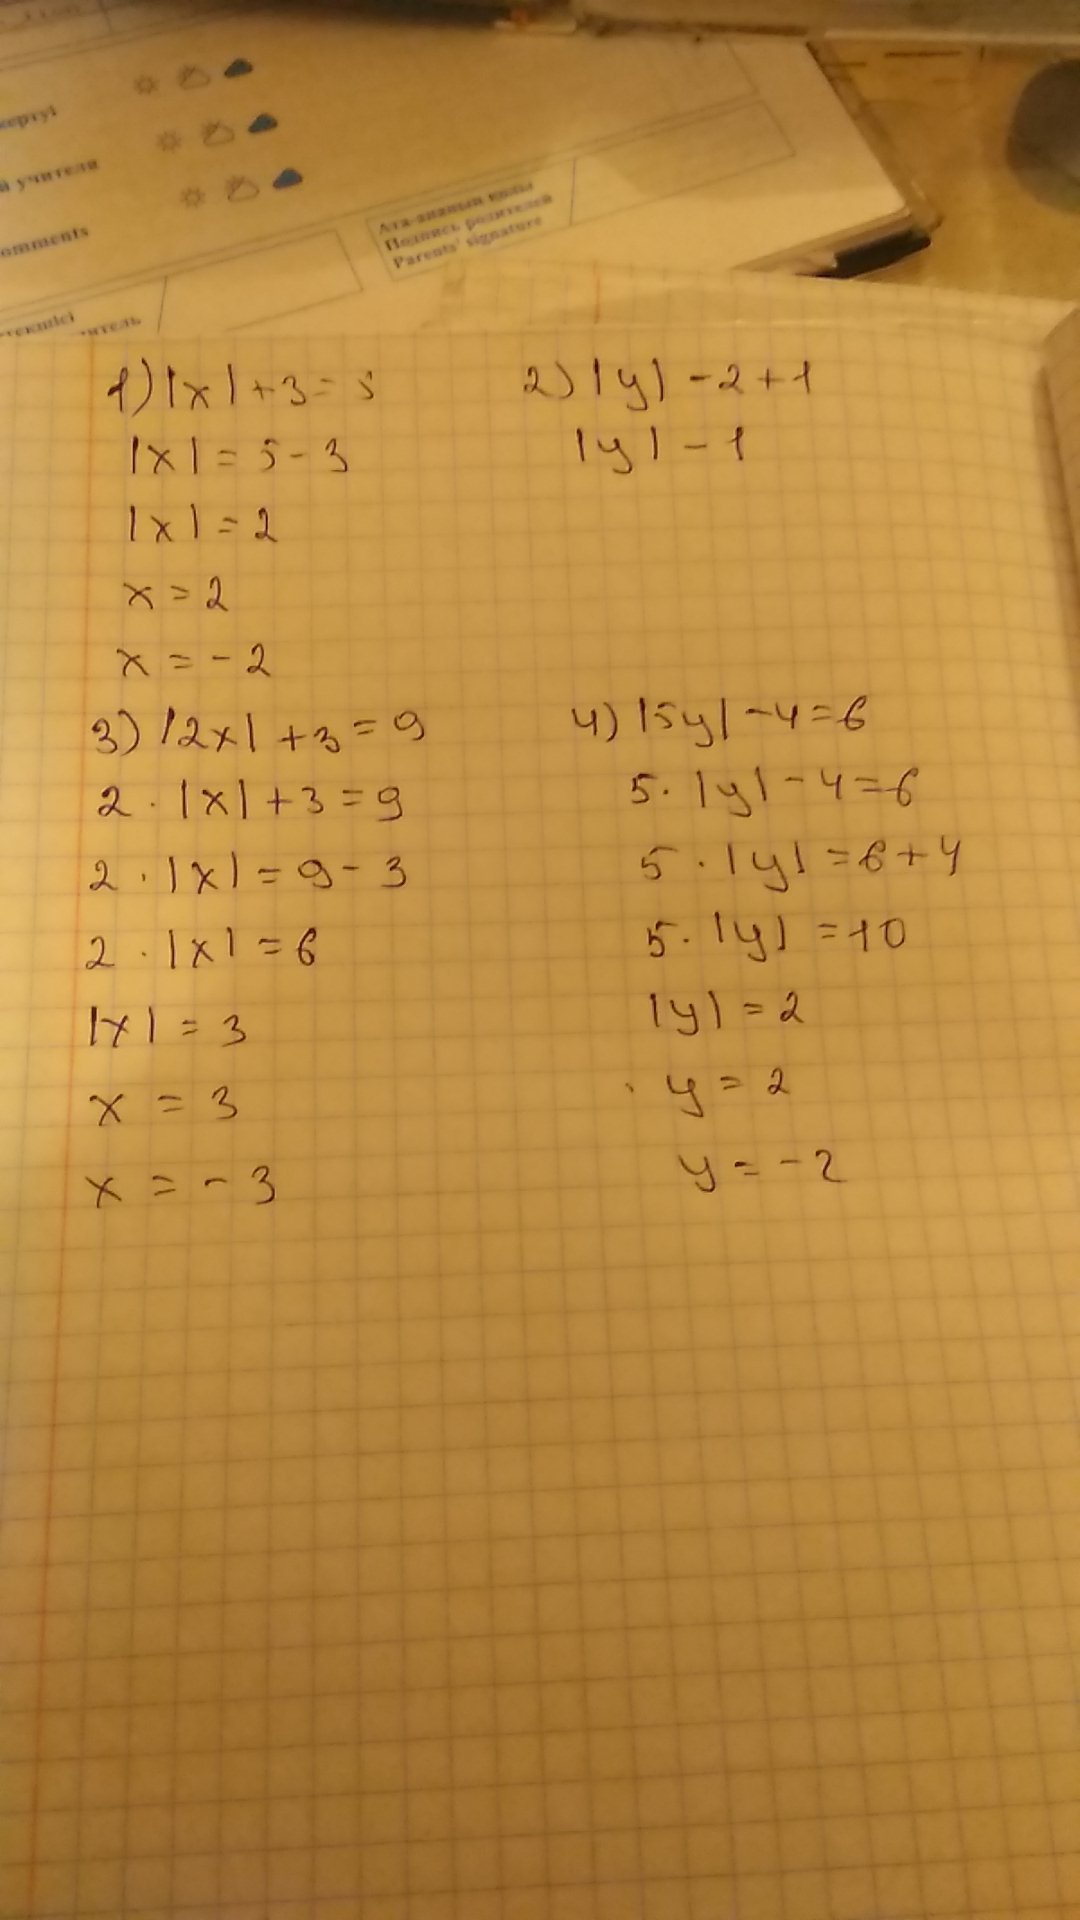 кертуі
й учителя
omments
Ата-ананың қолы
Подпись родителей
Parents' signature
текшісі
итель
1) |x| + 3 = 5
|x| = 5 - 3
|x| = 2
x = 2
x = -2
2) |y| - 2 + 1
|y| - 1
3) |2x| + 3 = 9
2 · |x| + 3 = 9
2 · |x| = 9 - 3
2 · |x| = 6
|x| = 3
x = 3
x = -3
4) |5y| - 4 = 6
5 · |y| - 4 = 6
5 · |y| = 6 + 4
5 · |y| = 10
|y| = 2
y = 2
y = -2